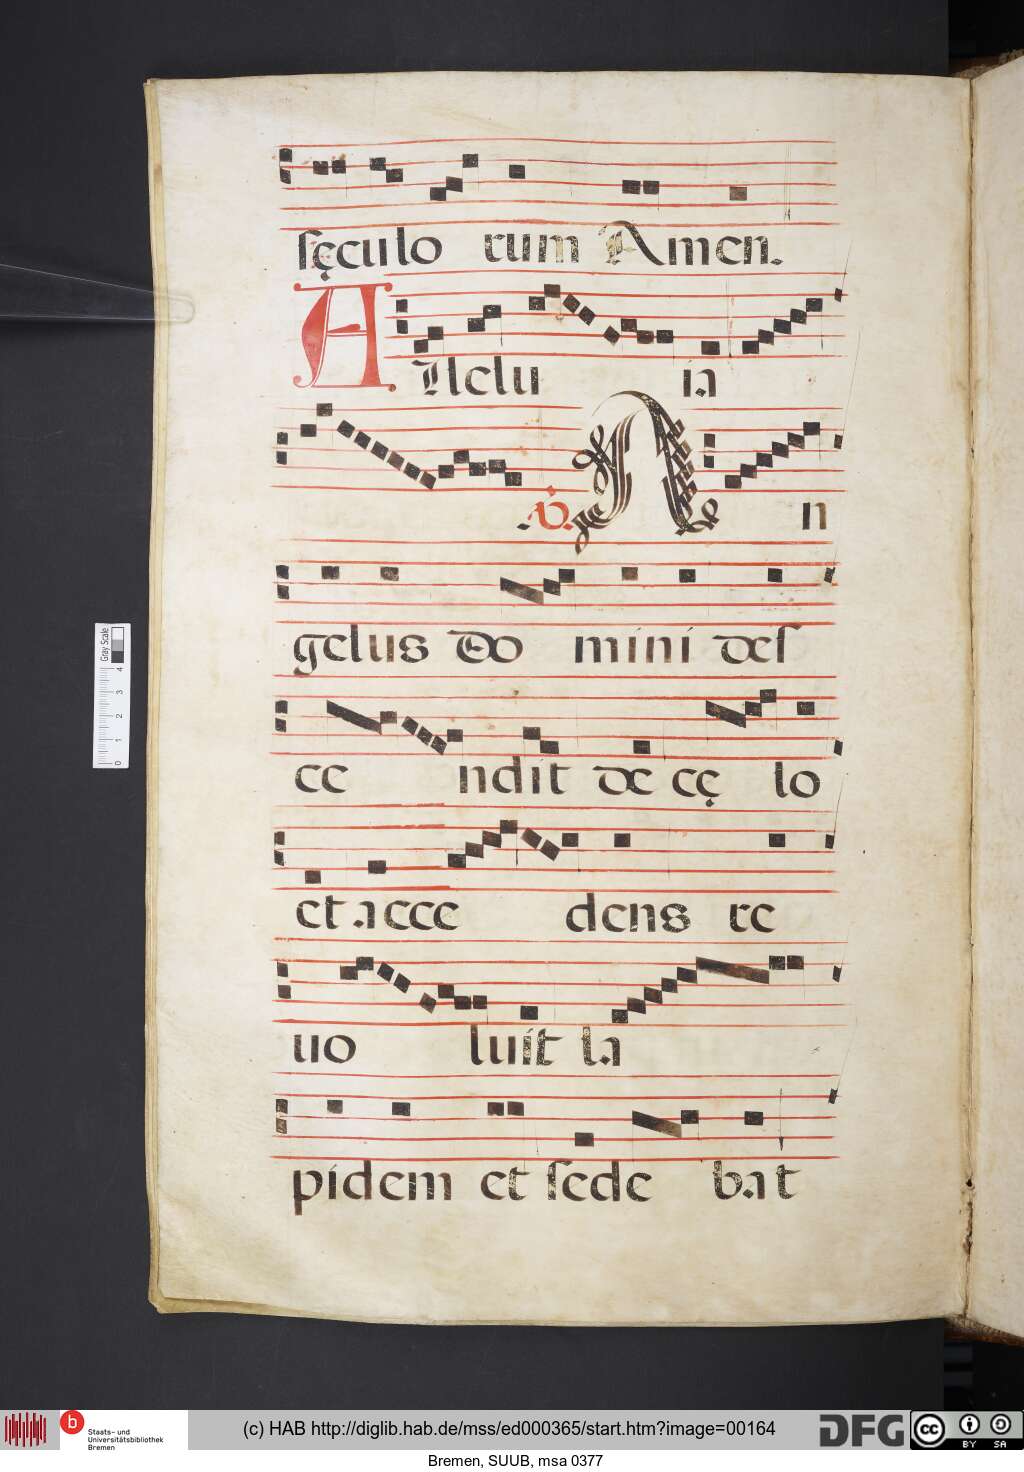 sęculo rum Amen.
Allelu ia
℣. An
gelus Do mini des
ce ndit de cę lo
et acce dens re
uo luit la
pidem et sede bat
Gray Scale
0 1 2 3 4
b
Staats- und
Universitätsbibliothek
Bremen
(c) HAB http://diglib.hab.de/mss/ed000365/start.htm?image=00164
DFG
cc BY SA
Bremen, SUUB, msa 0377